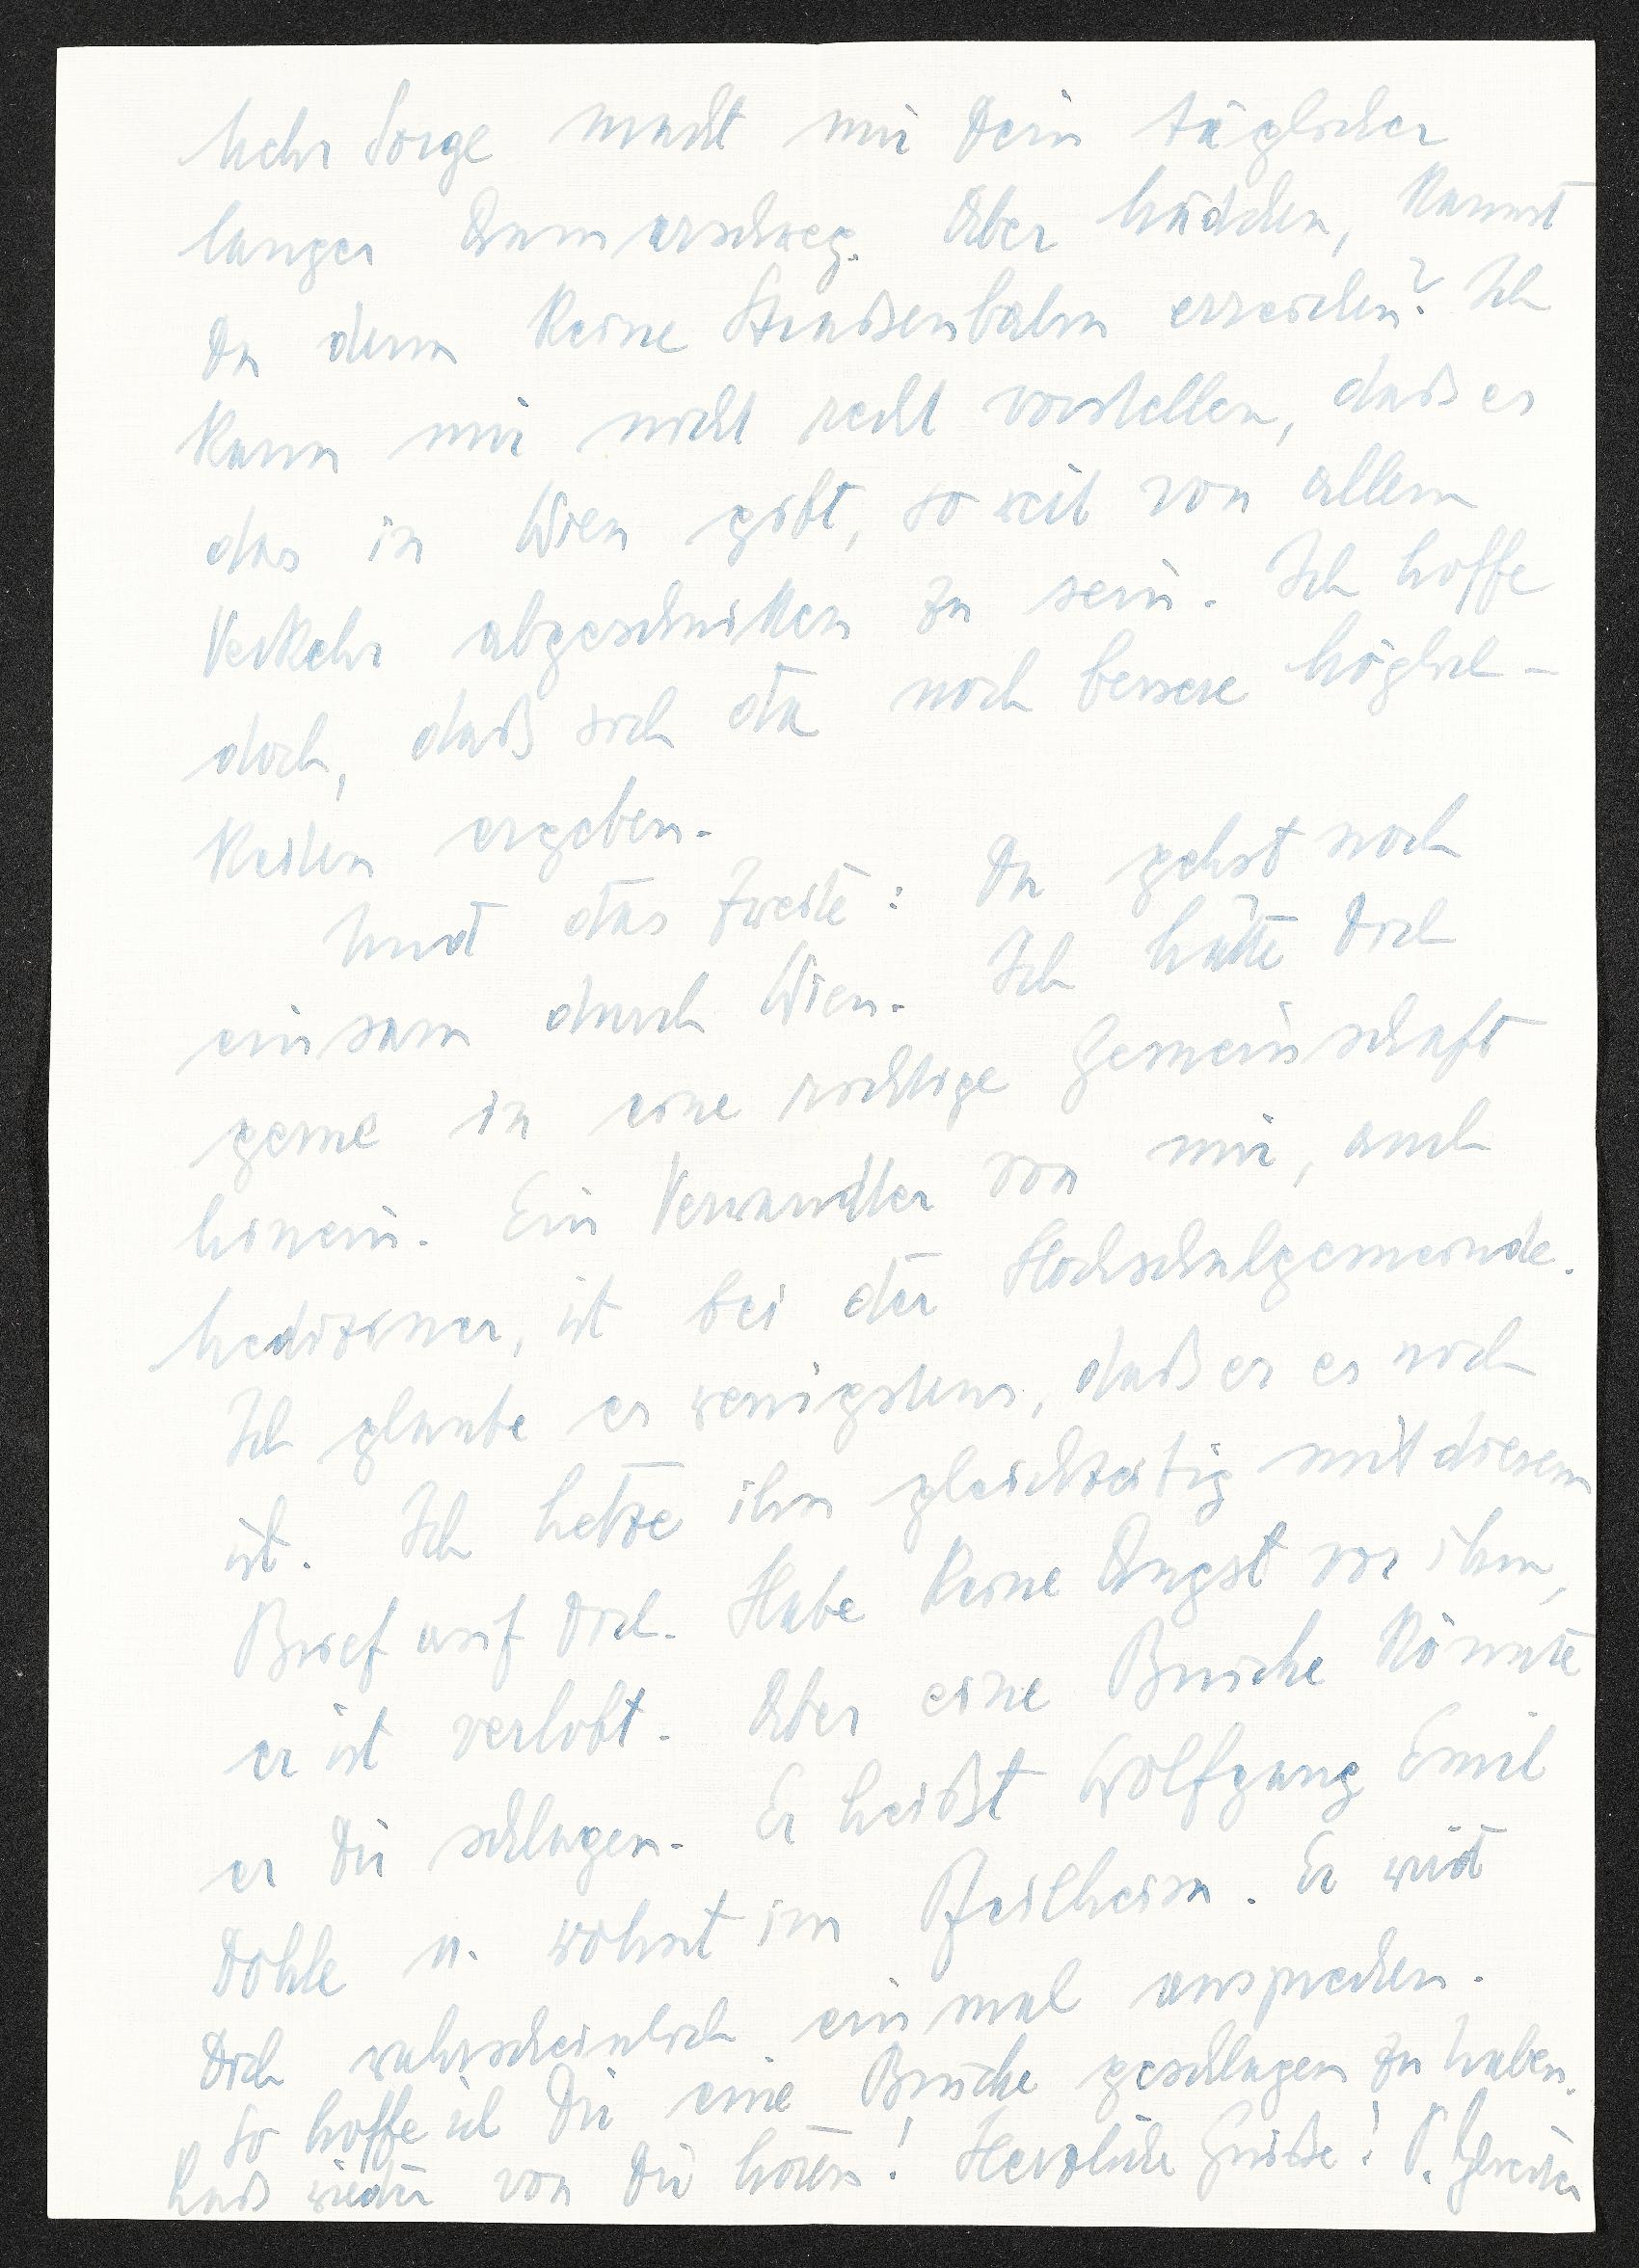 Mehr Sorge macht mir Dein täglicher
langer Anmarschweg. Aber Mädchen, kannst
Du denn keine Straßenbahn erreichen? Ich
kann mir nicht recht vorstellen, daß es
das in Wien gibt, so weit von allem
Verkehr abgeschnitten zu sein. Ich hoffe
doch, daß sich da noch bessere Möglich-
keiten ergeben.
Und das Zweite: Du gehst noch
einsam durch Wien. Ich hätte Dich
gerne in eine richtige Gemeinschaft
hinein. Ein Verwandter von mir, auch
Mediziner, ist bei der Hochschulgemeinde.
Ich glaube es wenigstens, daß er es noch
ist. Ich hetze ihn gleichzeitig mit diesem
Brief auf Dich. Habe keine Angst vor ihm,
er ist verlobt. Aber eine Brücke könnte
er Dir schlagen. Er heißt Wolfgang Emil
Dohle u. wohnt im Pfeilheim. Er wird
Dich wahrscheinlich einmal ansprechen.
So hoffe ich Dir eine Brücke geschlagen zu haben.
Laß wieder von Dir hören! Herzliche Grüße! P.